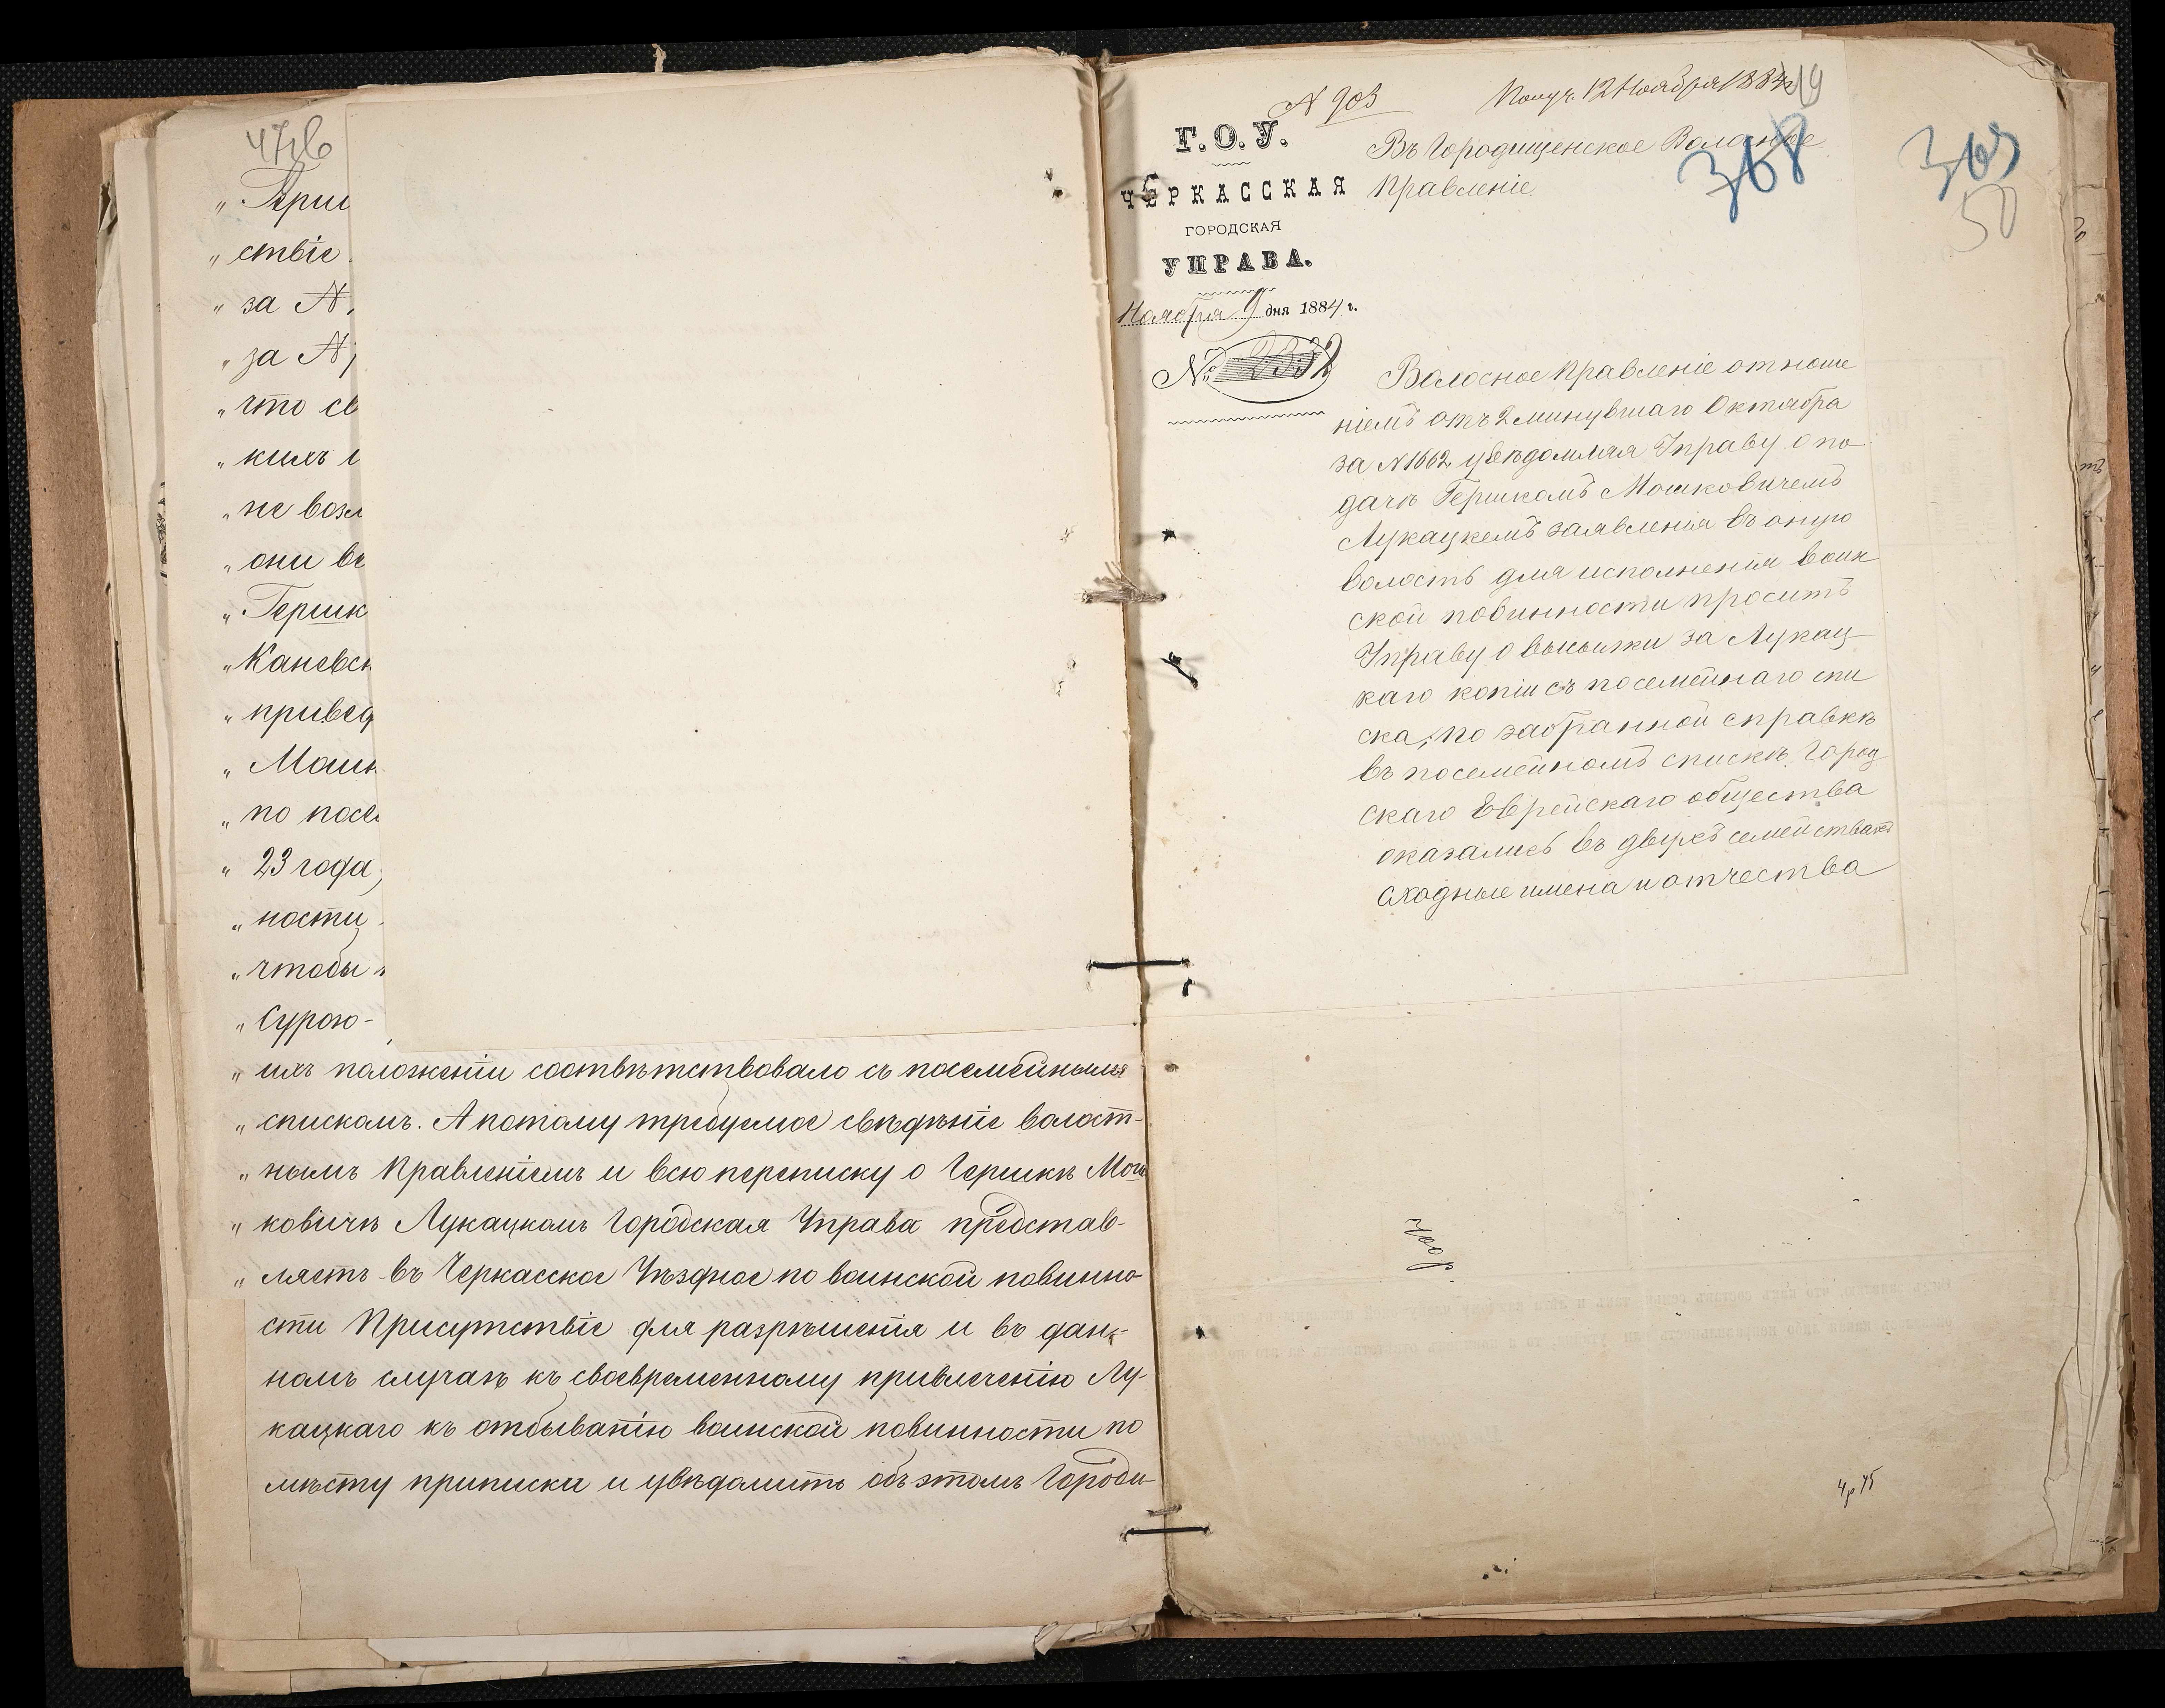 " При
" ствіе
" за №
" за №
" что св
" кихъ
" не воз
" они въ
" Гершк
" Каневск
" привед
" Мошк
" по посе
" 23 года,
" ности
" чтобы
" Сурою-
" ихъ положеніи соотвѣтствовало съ посемейнымъ
" спискомъ. А потому требуемое свѣдѣніе волост-
" нымъ Правленіемъ и всю переписку о Гершкѣ Мош
" ковичѣ Лукацкомъ Городская Управа представ-
" ляетъ въ Черкасское Уѣздное по воинской повинно
сти Присутствіе для разрѣшенія и въ дан-
номъ случаѣ къ своевременному привлеченію Лу-
кацкаго къ отбыванію воинской повинности по
мѣсту приписки и увѣдомить объ этомъ Городи-
№ 903
Получ. 12 Ноября 1884 г.
19
Г. О. У.
ЧЕРКАССКАЯ
ГОРОДСКАЯ
УПРАВА.
Ноября 9 дня 1884 г.
№ 2332
Въ Городищенское Волостное
Правленіе
368
369
50
Волосное Правленіе отноше
ніемъ отъ 2 минувшаго Октября
за № 1662 увѣдомляя Управу о по
дачѣ Гершкомъ Мошковичемъ
Лукацкемъ заявленія въ оную
волость для исполненія воин
ской повинности проситъ
Управу о высылки за Лукац
каго копіи съ посемейнаго спи
ска, по забранной справкѣ
въ посемейномъ спискѣ Город
скаго Еврейскаго общества
оказались въ двухъ семействахъ
сходные имена и отчества